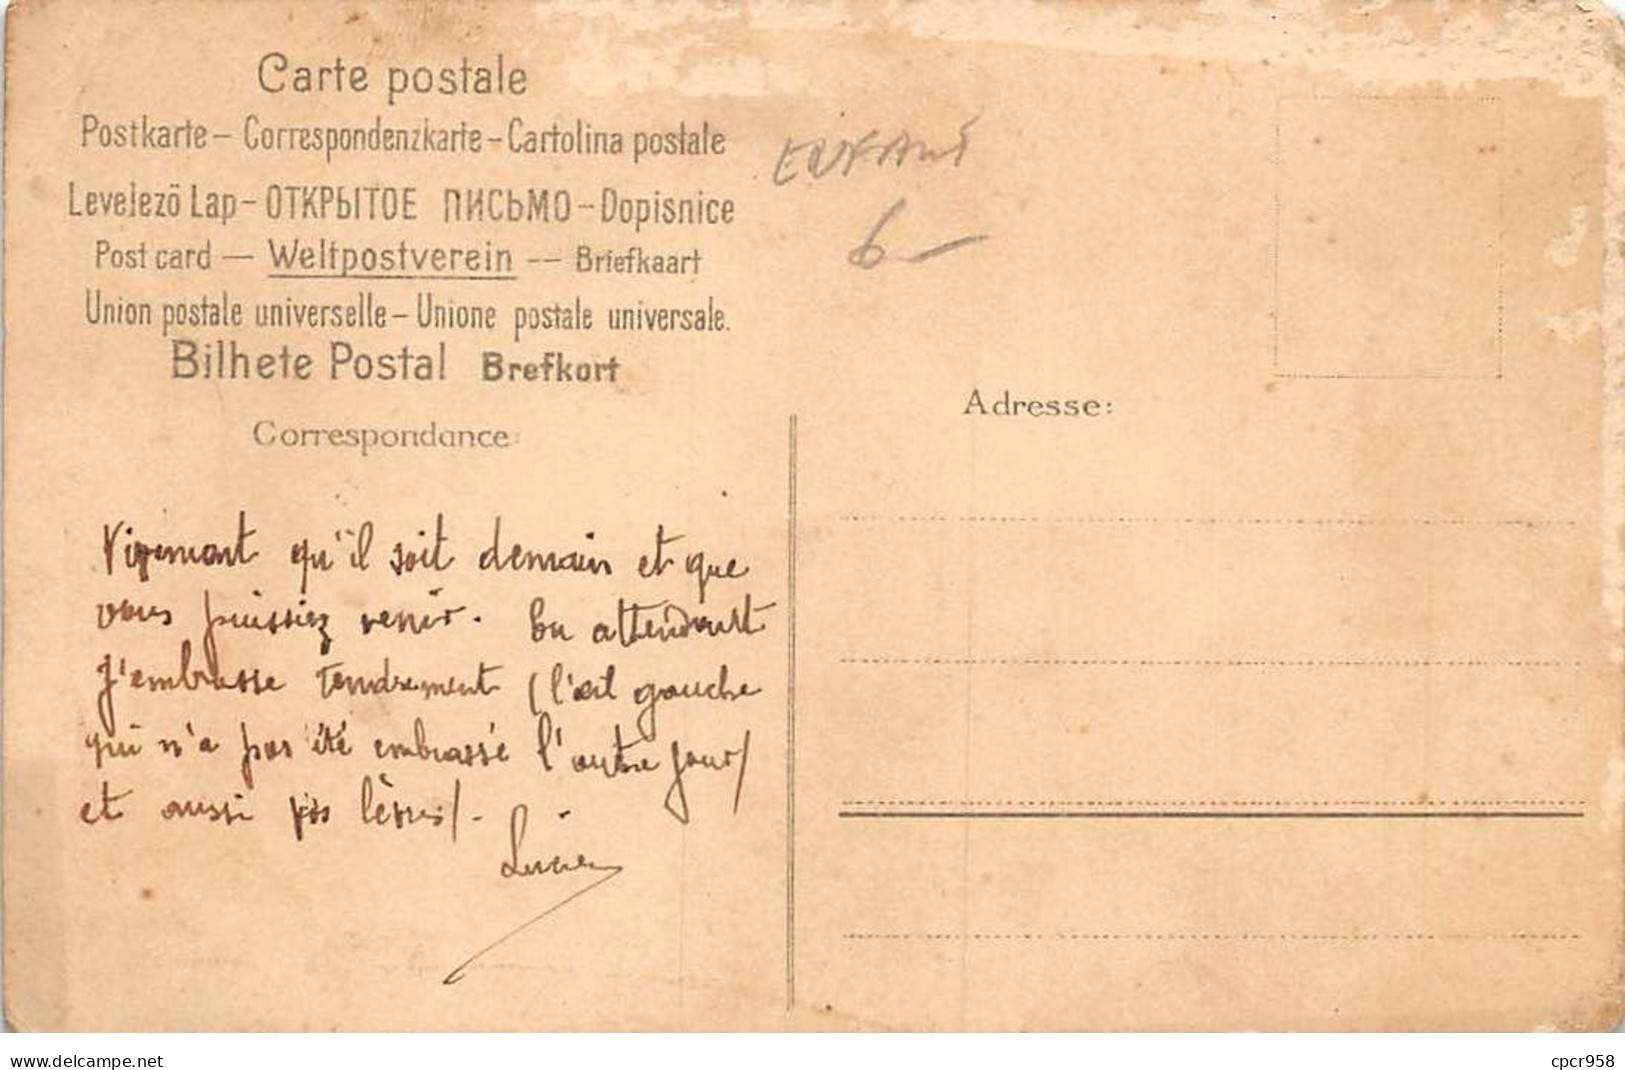 Carte postale
Postkarte – Correspondenzkarte – Cartolina postale
Levelező Lap – ОТКРЫТОЕ ПИСЬМО – Dopisnice
Post card — Weltpostverein -- Briefkaart
Union postale universelle – Unione postale universale.
Bilhete Postal Brefkort
Correspondance:
ENFANT
6 –
Adresse:
Vivement qu'il soit demain et que
vous puissiez venir. En attendant
j'embrasse tendrement (l'œil gauche
qui n'a pas été embrassé l'autre jour)
et aussi vos lèvres/. -
Lucien
www.delcampe.net
cpcr958